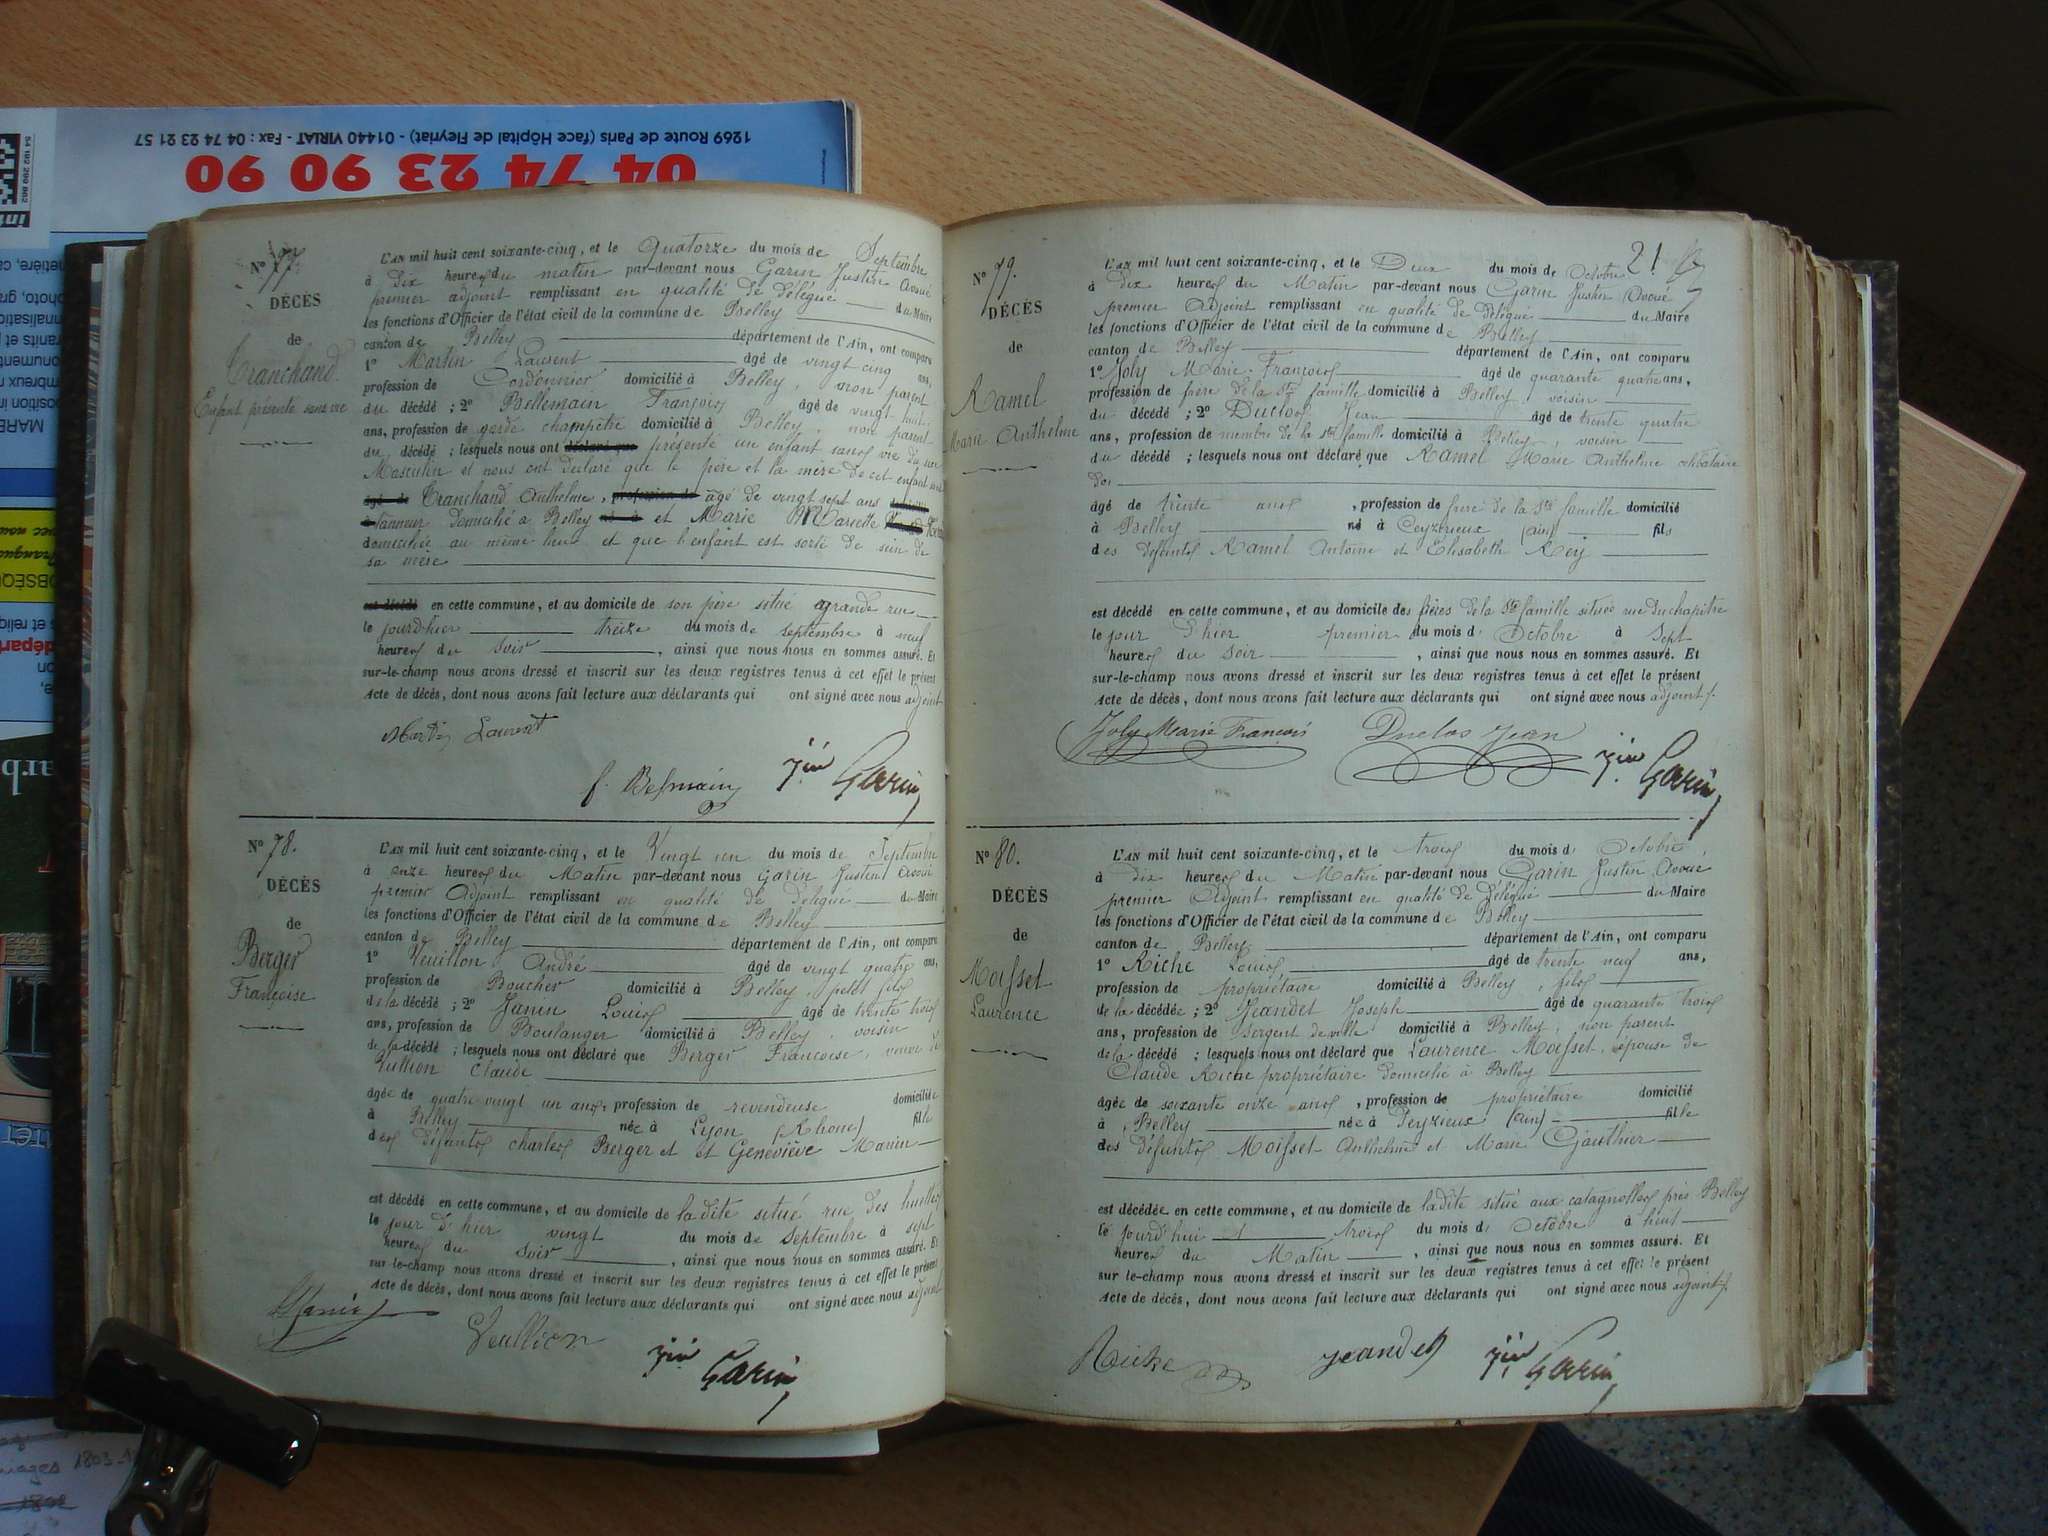 1269 Route de Paris (face Hôpital de Fleyriat) - 01440 VIRIAT - Fax : 04 74 23 21 57
04 74 23 90 90
N° 77.
DÉCÈS
de
Tranchand
Enfant présenté sans vie
L'AN mil huit cent soixante-cinq, et le Quatorze du mois de Septembre
à dix heures du matin par-devant nous Garin Justin Avoué
premier adjoint remplissant en qualité de délégué du Maire
les fonctions d'Officier de l'état civil de la commune de Belley
canton de Belley département de l'Ain, ont comparu
1° Martin Laurent âgé de vingt cinq ans,
profession de Cordonnier domicilié à Belley, non parent
du décédé ; 2° Bellemain François âgé de vingt huit
ans, profession de garde champêtre domicilié à Belley, non parent
du décédé ; lesquels nous ont déclaré que présenté un enfant sans vie du sexe
Masculin et nous ont déclaré que le père et la mère de cet enfant sont
âgé de Tranchand Anthelme, profession de âgé de vingt sept ans
tanneur domicilié à Belley et Marie Mariette
domiciliée au même lieu et que l'enfant est sorti du sein de
sa mère
est décédé en cette commune, et au domicile de son père situé grande rue
le jourd'hier treize du mois de septembre à neuf
heures du soir, ainsi que nous nous en sommes assuré. Et
sur-le-champ nous avons dressé et inscrit sur les deux registres tenus à cet effet le présent
Acte de décès, dont nous avons fait lecture aux déclarants qui ont signé avec nous adjoint
Martin Laurent
f. Belmain
Jin Garin
N° 78.
DÉCÈS
de
Berger
Françoise
L'AN mil huit cent soixante-cinq, et le Vingt un du mois de Septembre
à onze heures du Matin par-devant nous Garin Justin Avoué
premier Adjoint remplissant en qualité de délégué du Maire
les fonctions d'Officier de l'état civil de la commune de Belley
canton de Belley département de l'Ain, ont comparu
1° Veuillon André âgé de vingt quatre ans,
profession de Boucher domicilié à Belley, petit fils
de la décédé ; 2° Janin Louis âgé de trente trois
ans, profession de Boulanger domicilié à Belley, voisin
de la décédé ; lesquels nous ont déclaré que Berger Françoise, veuve de
Claude
âgée de quatre vingt un ans, profession de revendeuse domiciliée
à Belley née à Lyon (Rhone) fille
des défunts charles Berger et et Geneviève Manin
est décédé en cette commune, et au domicile de la dite situé rue des
le jour d'hier vingt du mois de septembre à sept
heures du soir, ainsi que nous nous en sommes assuré. Et
sur-le-champ nous avons dressé et inscrit sur les deux registres tenus à cet effet le présent
Acte de décès, dont nous avons fait lecture aux déclarants qui ont signé avec nous adjoint
Janin
Veuillon
Jin Garin
21
N° 79.
DÉCÈS
de
Ramel
Marie Anthelme
L'AN mil huit cent soixante-cinq, et le Deux du mois de Octobre
à Dix heures du Matin par-devant nous Garin Justin Avoué
premier Adjoint remplissant en qualité de délégué du Maire
les fonctions d'Officier de l'état civil de la commune de Belley
canton de Belley département de l'Ain, ont comparu
1° Joly Marie-François âgé de quarante quatre ans,
profession de frère de la Ste famille domicilié à Belley, voisin
du décédé ; 2° Duclos Jean âgé de trente quatre
ans, profession de membre de la Ste famille domicilié à Belley, voisin
du décédé ; lesquels nous ont déclaré que Ramel Marie Anthelme célibataire
de
âgé de trente ans, profession de frère de la Ste famille domicilié
à Belley né à Ceyzerieux (ain) fils
des défunts Ramel Antoine et Elisabeth Rey
est décédé en cette commune, et au domicile des frères de la Ste famille située rue du chapitre
le jour d'hier premier du mois d'Octobre à Sept
heures du soir, ainsi que nous nous en sommes assuré. Et
sur-le-champ nous avons dressé et inscrit sur les deux registres tenus à cet effet le présent
Acte de décès, dont nous avons fait lecture aux déclarants qui ont signé avec nous adjoint
Joly Marie François
Duclos Jean
Jin Garin
N° 80.
DÉCÈS
de
Moisset
Laurence
L'AN mil huit cent soixante-cinq, et le trois du mois d'Octobre
à dix heures du Matin par-devant nous Garin Justin Avoué
premier Adjoint remplissant en qualité de Délégué du Maire
les fonctions d'Officier de l'état civil de la commune de Belley
canton de Belley département de l'Ain, ont comparu
1° Riche Louis âgé de trente neuf ans,
profession de propriétaire domicilié à Belley, fils
de la décédée ; 2° Jeandet Joseph âgé de quarante trois
ans, profession de Sergent de ville domicilié à Belley, non parent
de la décédé ; lesquels nous ont déclaré que Laurence Moisset, épouse de
Claude Riche propriétaire domicilié à Belley
âgée de soixante onze ans, profession de propriétaire domicilié
à Belley née à Peyzieux (ain) fille
des défunts Moisset Anthelme et Marie Gauthier
est décédée en cette commune, et au domicile de la dite situé aux catagnolles près Belley
le jourd'hui trois du mois d'Octobre à huit
heures du Matin, ainsi que nous nous en sommes assuré. Et
sur le-champ nous avons dressé et inscrit sur les deux registres tenus à cet effet le présent
Acte de décès, dont nous avons fait lecture aux déclarants qui ont signé avec nous adjoint
Riche
Jeandet
Jin Garin